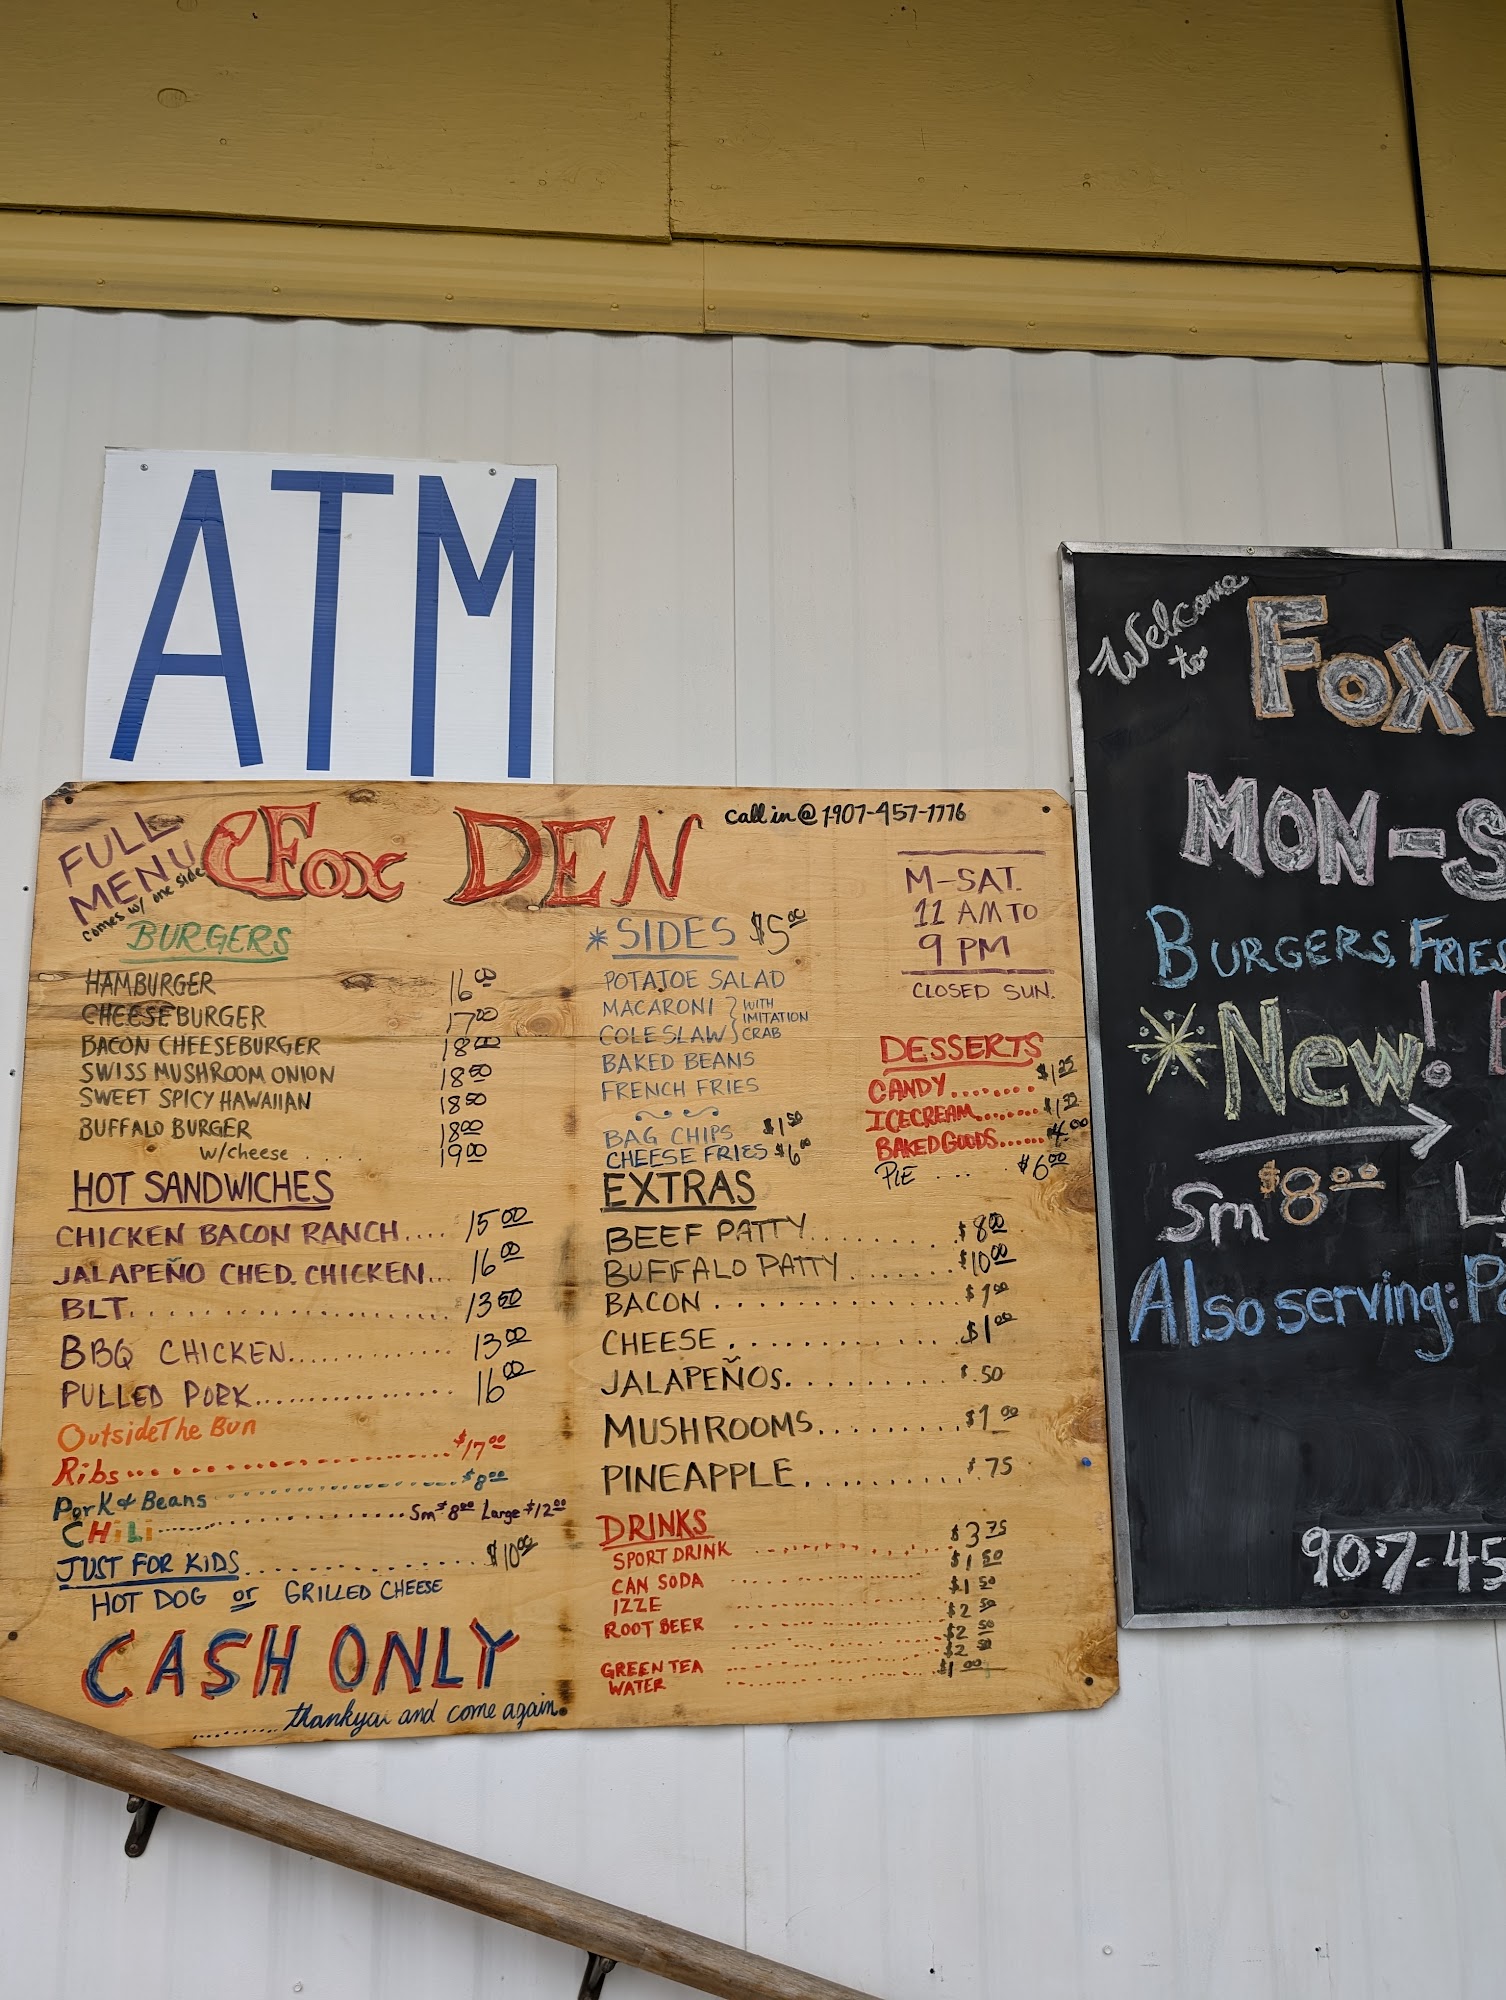 ATM
FULL
MENU
comes w/ one side
Fox DEN
call in @ 1-907-457-1776
M-SAT.
11 AM TO
9 PM
CLOSED SUN.
BURGERS
HAMBURGER 16 00
CHEESEBURGER 17 00
BACON CHEESEBURGER 18 00
SWISS MUSHROOM ONION 18 50
SWEET SPICY HAWAIIAN 18 50
BUFFALO BURGER 18 00
W/cheese .... 19 00
HOT SANDWICHES
CHICKEN BACON RANCH.... 15 00
JALAPEÑO CHED. CHICKEN... 16 00
BLT.................... 13 50
BBQ CHICKEN.............. 13 00
PULLED PORK................ 16 00
Outside The Bun
Ribs........................ $17 00
Pork & Beans .................... $8 00
CHiLi ...................... Sm $8 00 Large $12 00
JUST FOR KIDS ............... $10 00
HOT DOG or GRILLED CHEESE
CASH ONLY
......... thankyou and come again.
* SIDES $5 00
POTATOE SALAD
MACARONI } WITH
COLESLAW } IMITATION CRAB
BAKED BEANS
FRENCH FRIES
BAG CHIPS $1 50
CHEESE FRIES $6 00
DESSERTS
CANDY........ $1 25
ICECREAM........
BAKED GOODS...... 4 00
PIE .... $6 00
EXTRAS
BEEF PATTY.......... $8 00
BUFFALO PATTY........ $10 00
BACON ............... $1 00
CHEESE .............. $1 00
JALAPEÑOS.......... $.50
MUSHROOMS......... $1 00
PINEAPPLE.......... $.75
DRINKS
SPORT DRINK ........... $3 75
CAN SODA ............ $1 50
IZZE ............ $1 50
ROOT BEER ............ $2 50
$2 50
$2 50
GREEN TEA
WATER ............ $1 00
Welcome
to
Fox
MON-S
BURGERS, FRIES
*New!
Sm $8 00 L
Also serving: P
907-45